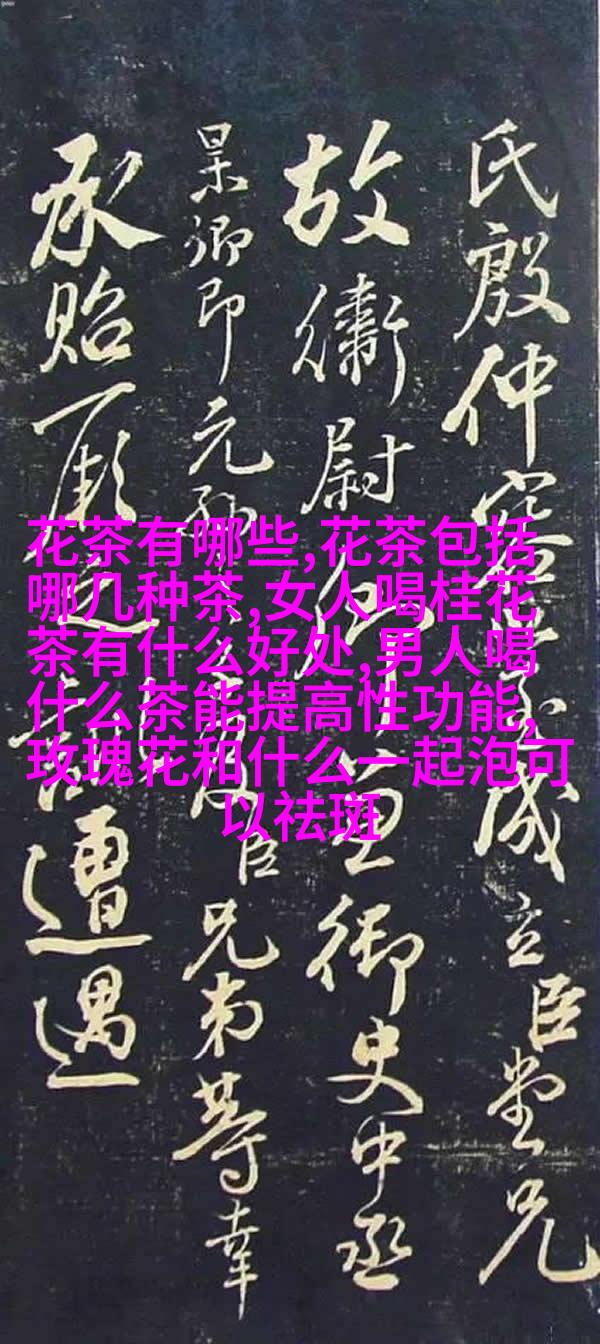 花茶有哪些,花茶包括
哪几种茶,女人喝桂花
茶有什么好处,男人喝
什么茶能提高性功能,
玫瑰花和什么一起泡可
以祛斑
氏殷仲容成立臣堂兄
故衛尉卿御史中丞
杲卿即元孫臣兄弟等幸
承貽厥遭遇